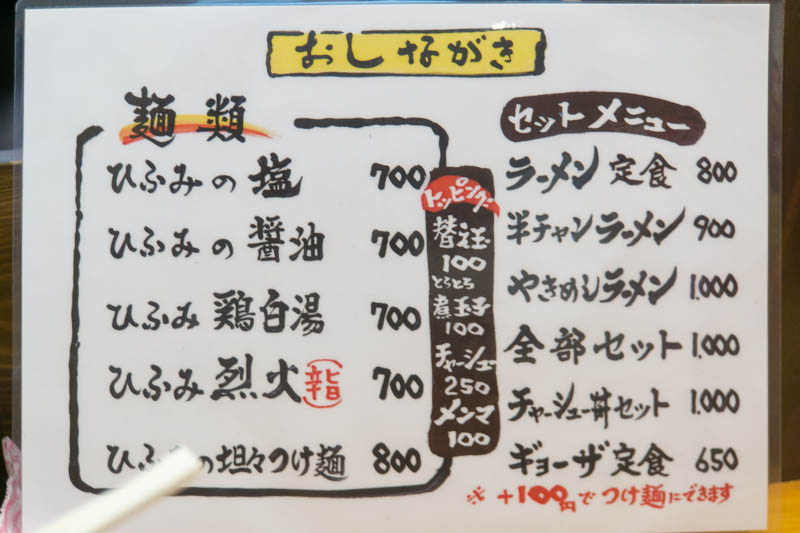 おしながき
麺類
ひふみの塩 700
ひふみの醤油 700
ひふみ鶏白湯 700
ひふみ烈火 700
ひふ の坦々つけ麺 800
トッピング
替え玉
100
とろとろ
煮玉子
100
チャーシュー
250
メンマ
100
セットメニュー
ラーメン定食 800
半チャンラーメン 900
やきめしラーメン 1,000
全部セット 1,000
チャーシュー丼セット 1,000
ギョーザ定食 650
※ +100円でつけ麺にできます